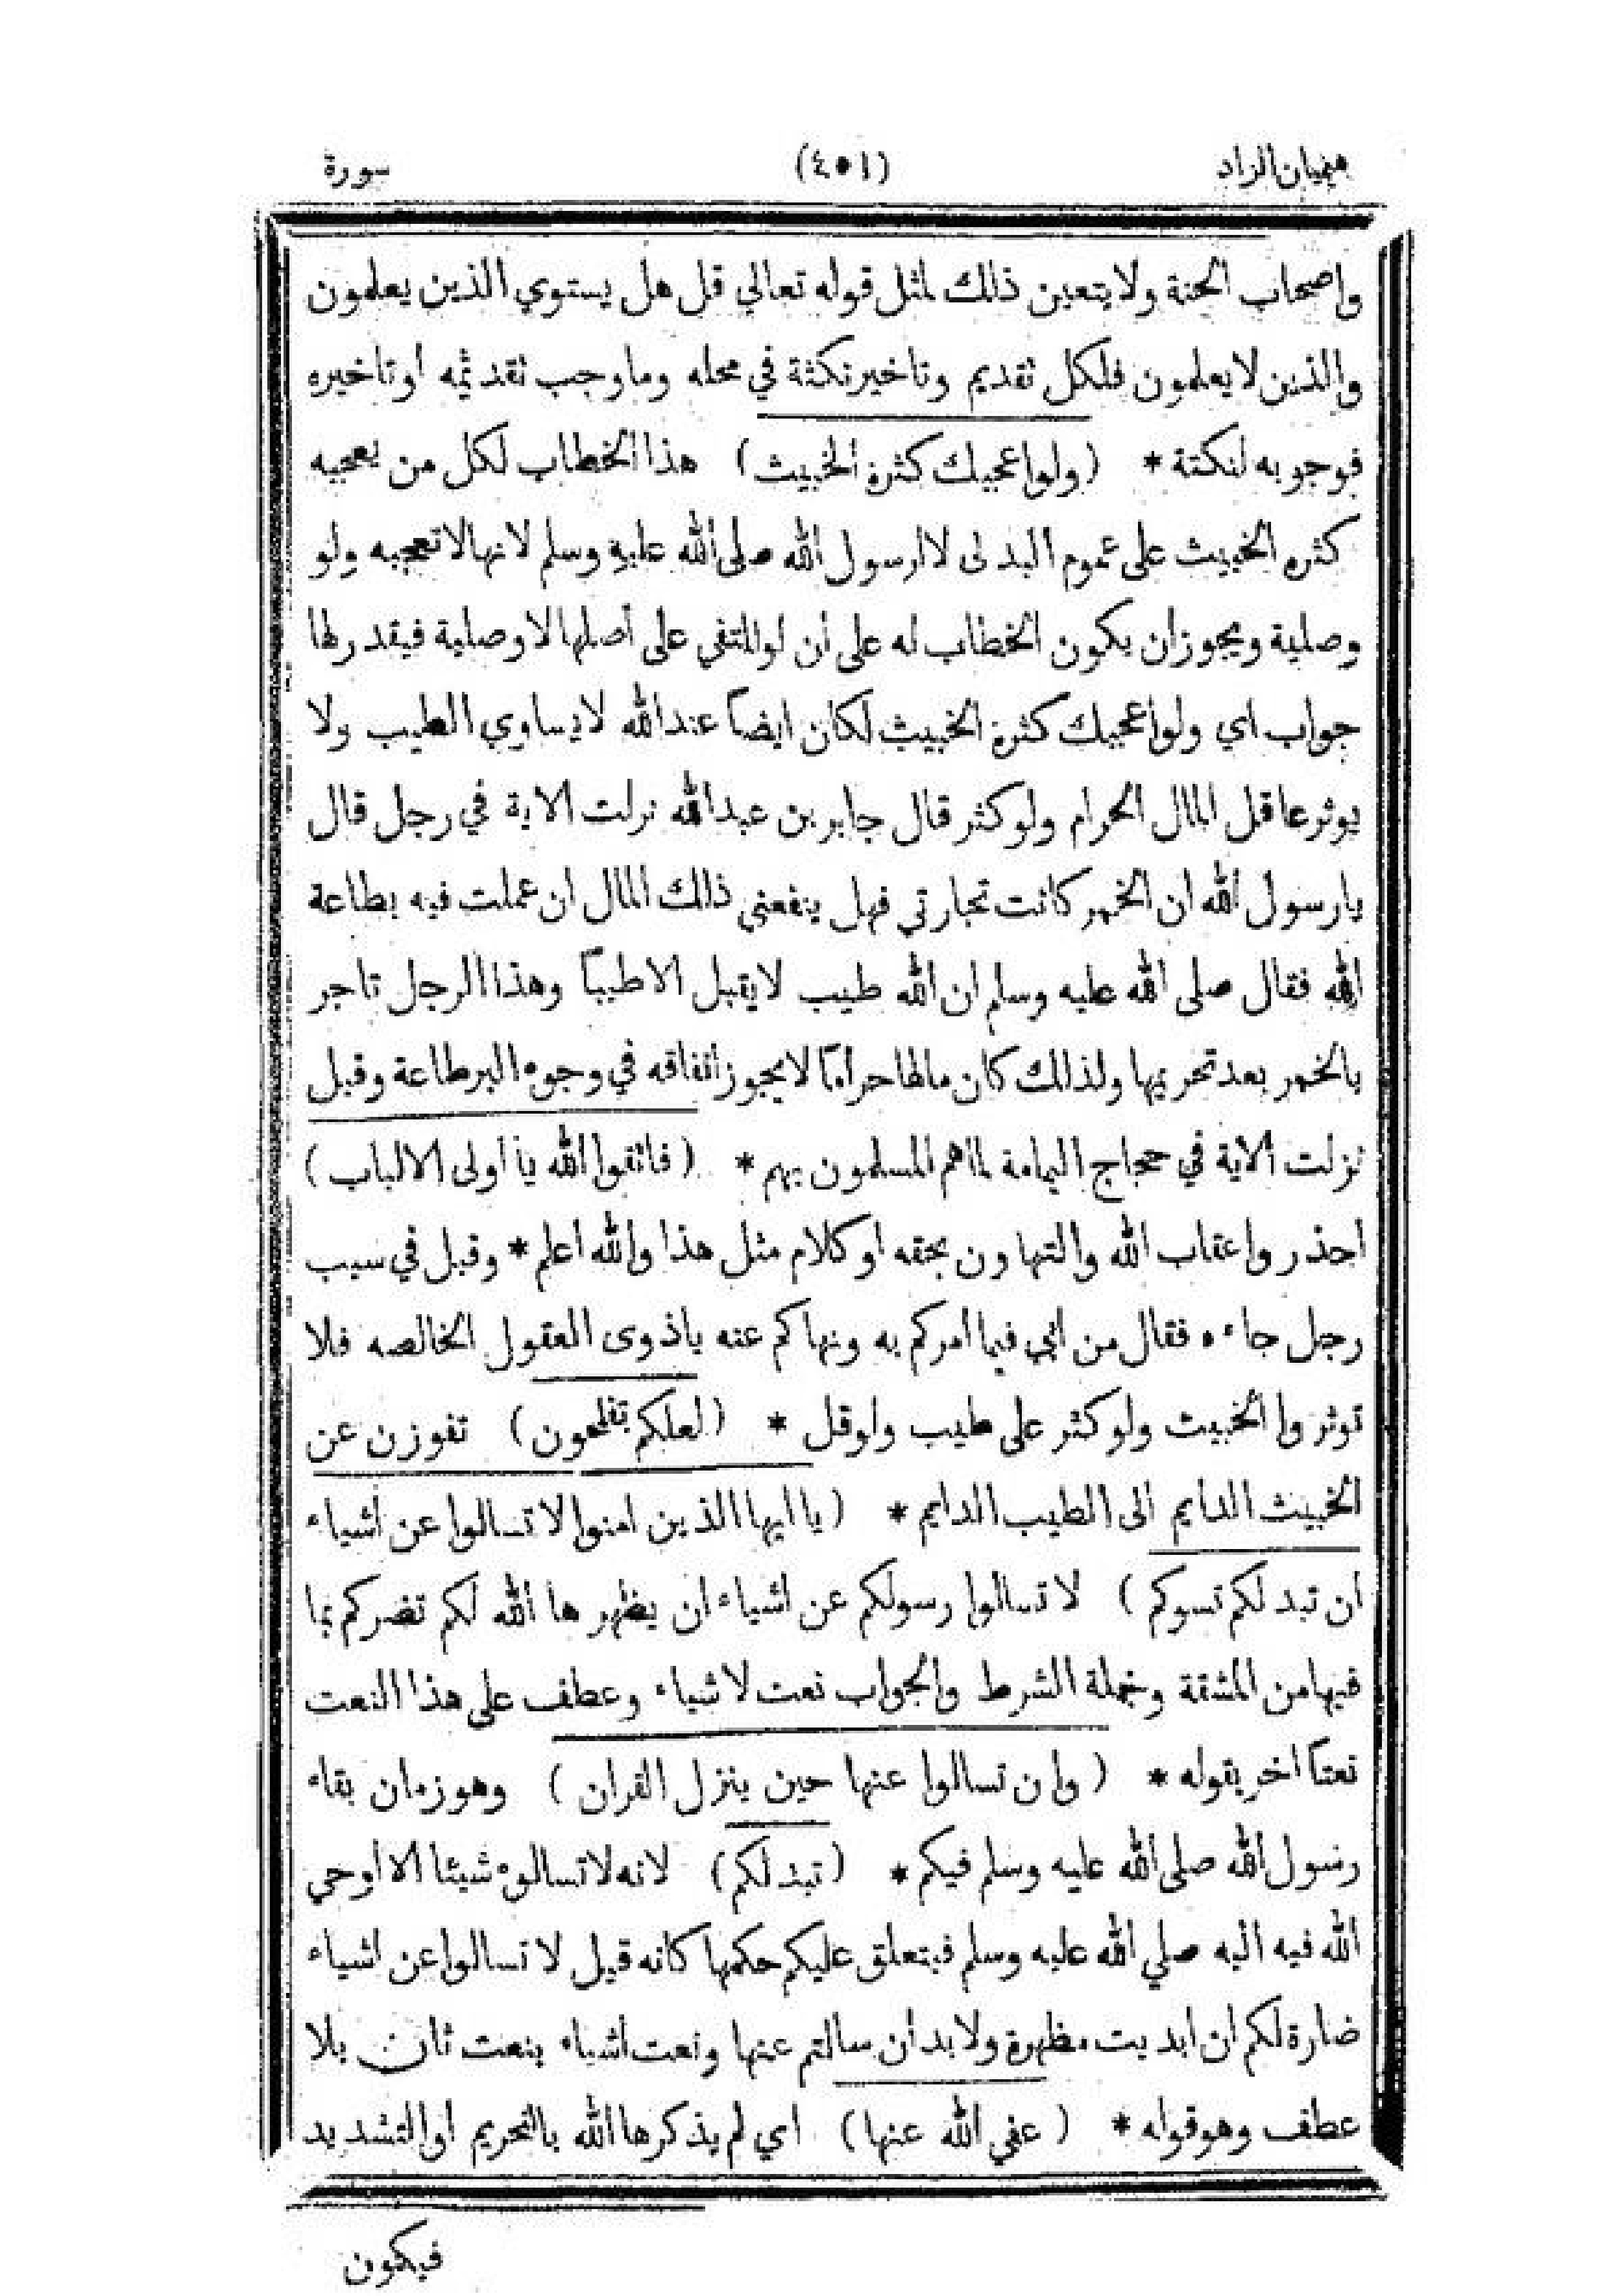 هميان الزاد (٤٥١) سورة
واصحاب الجنة ولا يتعين ذلك لمثل قوله تعالي قل هل يستوي الذين يعلمون
والذين لا يعلمون فلكل تقديم وتاخير نكثة في محله وما وجب تقديمه او تاخيره
فوجوبه لنكتة * (ولو اعجبك كثرة الخبيث) هذا الخطاب لكل من يعجبه
كثره الخبيث على عموم البدلى لا لرسول الله صلى الله عليه وسلم لانها لا تعجبه ولو
وصلية ويجوز ان يكون الخطاب له على أن لو للتفي على أصلها لا وصلية فيقدر لها
جواب اي ولو اعجبك كثرة الخبيث لكان ايضاً عند الله لا يساوي الطيب ولا
يوثر عاقل المال الحرام ولو كثر قال جابر بن عبد الله نزلت الاية في رجل قال
يا رسول الله ان الخمر كانت تجارتي فهل ينفعنى ذلك المال ان عملت فيه بطاعة
الله فقال صلى الله عليه وسلم ان الله طيب لا يقبل الا طيباً وهذا الرجل تاجر
بالخمر بعد تحريمها ولذلك كان مالها حراماً لا يجوز انفاقه في وجوه البر طاعة وقيل
نزلت الاية في حجاج اليمامة لما هم المسلمون بهم * (فاتقوا الله يا أولى الالباب)
احذروا عقاب الله والتهاون بحقه او كلام مثل هذا والله أعلم * وقيل في سبب
رجل جاءه فقال من ابي فيما امركم به ونهاكم عنه ياذوى العقول الخالصه فلا
توثروا الخبيث ولو كثر على طيب ولو قل * (لعلكم تفلحون) تفوزن عن
الخبيث الدايم الى الطيب الدايم * (يا ايها الذين امنوا لا تسالوا عن اشياء
ان تبد لكم تسوكم) لا تسالوا رسولكم عن اشياء ان يظهرها الله لكم تضركم بما
فيها من المشقة وجملة الشرط والجواب نعت لاشياء وعطف على هذا النعت
نعتاً اخر بقوله * (وان تسالوا عنها حين ينزل القران) وهو زمان بقاء
رسول الله صلى الله عليه وسلم فيكم * (تبد لكم) لانه لا تسالوه شيئا الا اوحى
الله فيه اليه صلي الله عليه وسلم فيتعلق عليكم حكمها كانه قيل لا تسالوا عن اشياء
ضارة لكم ان ابديت مظهرة ولا بد أن سالتم عنها ونعت أشياء بنعت ثان بلا
عطف وهو قوله * (عفى الله عنها) اي لم يذكرها الله بالتحريم او التشديد
فيكون